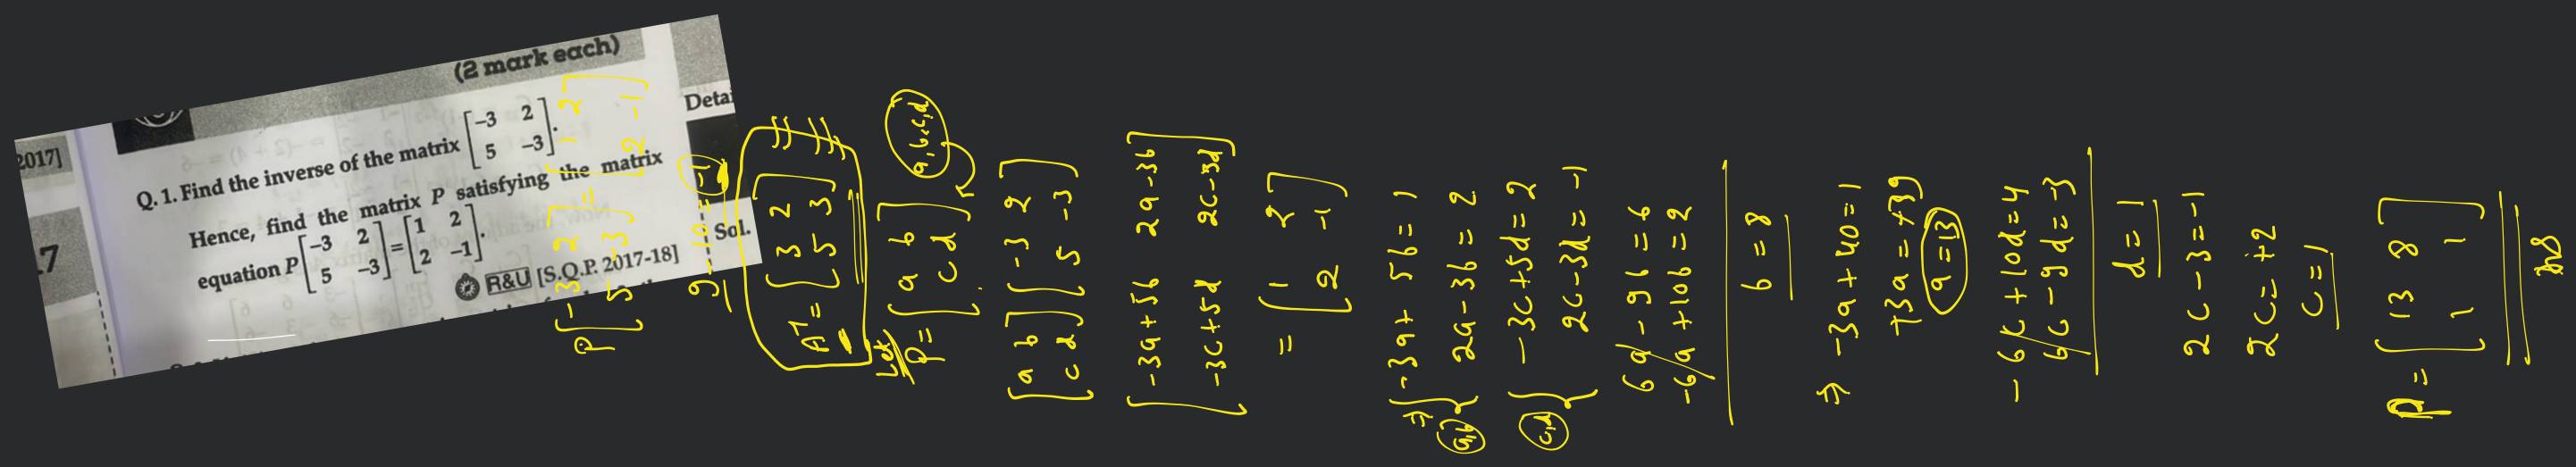 (2 mark each)
2017]
Q. 1. Find the inverse of the matrix [-3 2
5 -3].
Hence, find the matrix P satisfying the matrix
equation P[-3 2
5 -3] = [1 2
2 -1].
R&U [S.Q.P. 2017-18]
17
Detai
Sol.
P[-3 2
5 -3] = [1 2
2 -1]
9-10 = -1
A⁻¹ = [3 2
5 3]
Let
P = [a b
c d]
a,b,c,d
[a b
c d] [-3 2
5 -3]
[-3a+5b 2a-3b
-3c+5d 2c-3d]
= [1 2
2 -1]
⇒ {-3a+5b=1
2a-3b=2
a,b
{-3c+5d=2
2c-3d=-1
c,d
6a-9b=6
-6a+10b=2
b=8
⇒ -3a+40=1
+3a=+39
a=13
-6c+10d=4
6c-9d=-3
d=1
2c-3=-1
2c=+2
c=1
P = [13 8
1 1]